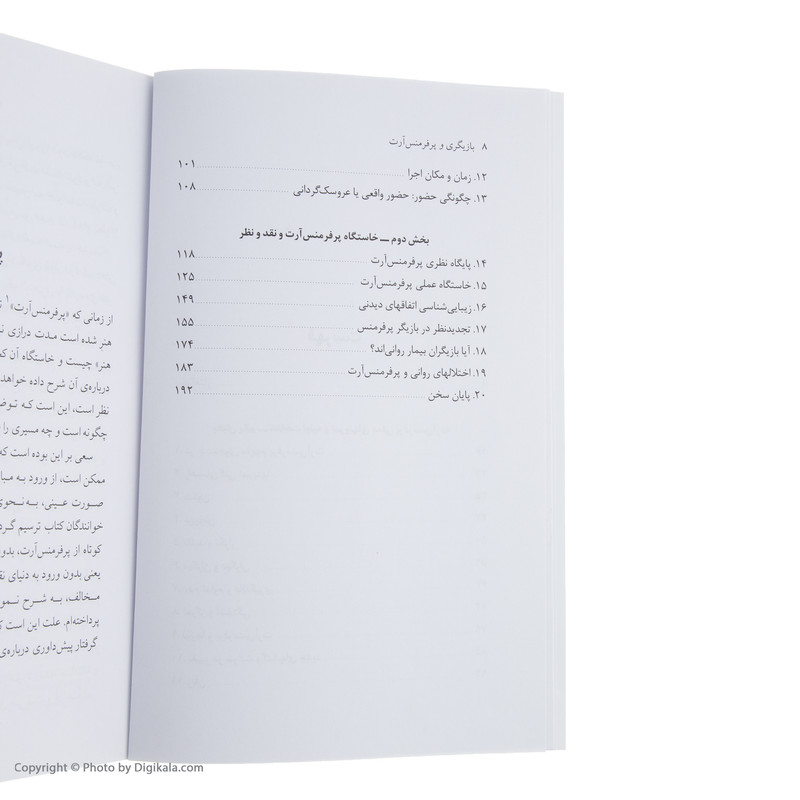 ۸ بازیگری و پرفرمنس‌آرت
۱۲. زمان و مکان اجرا ۱۰۱
۱۳. چگونگی حضور: حضور واقعی یا عروسک‌گردانی ۱۰۸
بخش دوم ـــ خاستگاه پرفرمنس‌آرت و نقد و نظر
۱۴. پایگاه نظری پرفرمنس‌آرت ۱۱۸
۱۵. خاستگاه عملی پرفرمنس‌آرت ۱۲۵
۱۶. زیبایی‌شناسی اتفاقهای دیدنی ۱۴۹
۱۷. تجدیدنظر در بازیگر پرفرمنس ۱۵۵
۱۸. آیا بازیگران بیمار روانی‌اند؟ ۱۷۴
۱۹. اختلالهای روانی و پرفرمنس‌آرت ۱۸۳
۲۰. پایان سخن ۱۹۲
از زمانی که «پرفرمنس‌آرت»۱
هنر شده است مدت درازی
هنر» چیست و خاستگاه آن
درباره‌ی آن شرح داده خواهد
نظر است، این است که
چگونه است و چه مسیری را
سعی بر این بوده است که
ممکن است، از ورود به
صورت عینی، به‌نحوی
خوانندگان کتاب ترسیم گرد
کوتاه از پرفرمنس‌آرت،
یعنی بدون ورود به دنیای
مخالف، به شرح
پرداخته‌ام. علت این است
گرفتار پیش‌داوری درباره‌ی
Copyright © Photo by Digikala.com